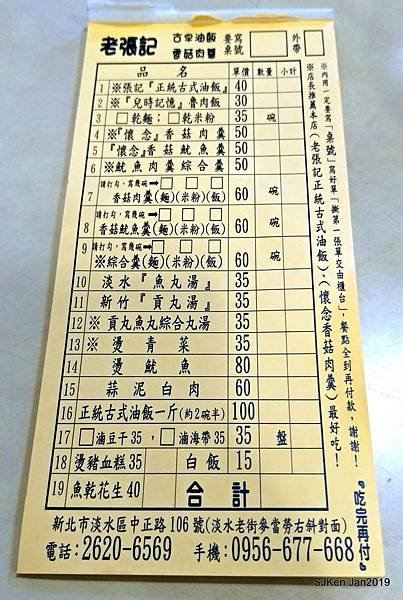 老張記 古早油飯 香菇肉羹 要寫桌號 外帶
品名 單價 數量 小計
1 ※張記『正統古式油飯』 40
2 ※『兒時記憶』魯肉飯 30
3 □乾麵；□乾米粉 35 碗
4 ※『懷念』香菇肉羹 50
5 『懷念』香菇魷魚羹 50
6 ※魷魚肉羹綜合羹 50
7 請打勾，寫幾碗➡□ □ □
香菇肉羹(麵)(米粉)(飯) 60 碗
8 請打勾，寫幾碗➡□ □ □
香菇魷魚羹(麵)(米粉)(飯) 60 碗
9 請打勾，寫幾碗➡□ □ □
※綜合羹(麵)(米粉)(飯) 60 碗
10 淡水『魚丸湯』 35
11 新竹『貢丸湯』 35
12 ※貢丸魚丸綜合丸湯 35
13 ※燙青菜 35
14 燙魷魚 80
15 蒜泥白肉 60
16 正統古式油飯一斤(約2碗半) 100
17 □滷豆干35，□滷海帶35 35 盤
18 燙豬血糕35 白飯 15
19 魚乾花生40 合計
※內用一定要寫「桌號」寫好單「撕第一張單交由櫃台」，餐點全到再付款，謝謝！
※店長推薦本店(老張記正統古式油飯)；(懷念香菇肉羹)最好吃！
『吃完再付』
新北市淡水區中正路106號(淡水老街麥當勞右斜對面)
電話：2620-6569 手機：0956-677-668
SJKen Jan2019